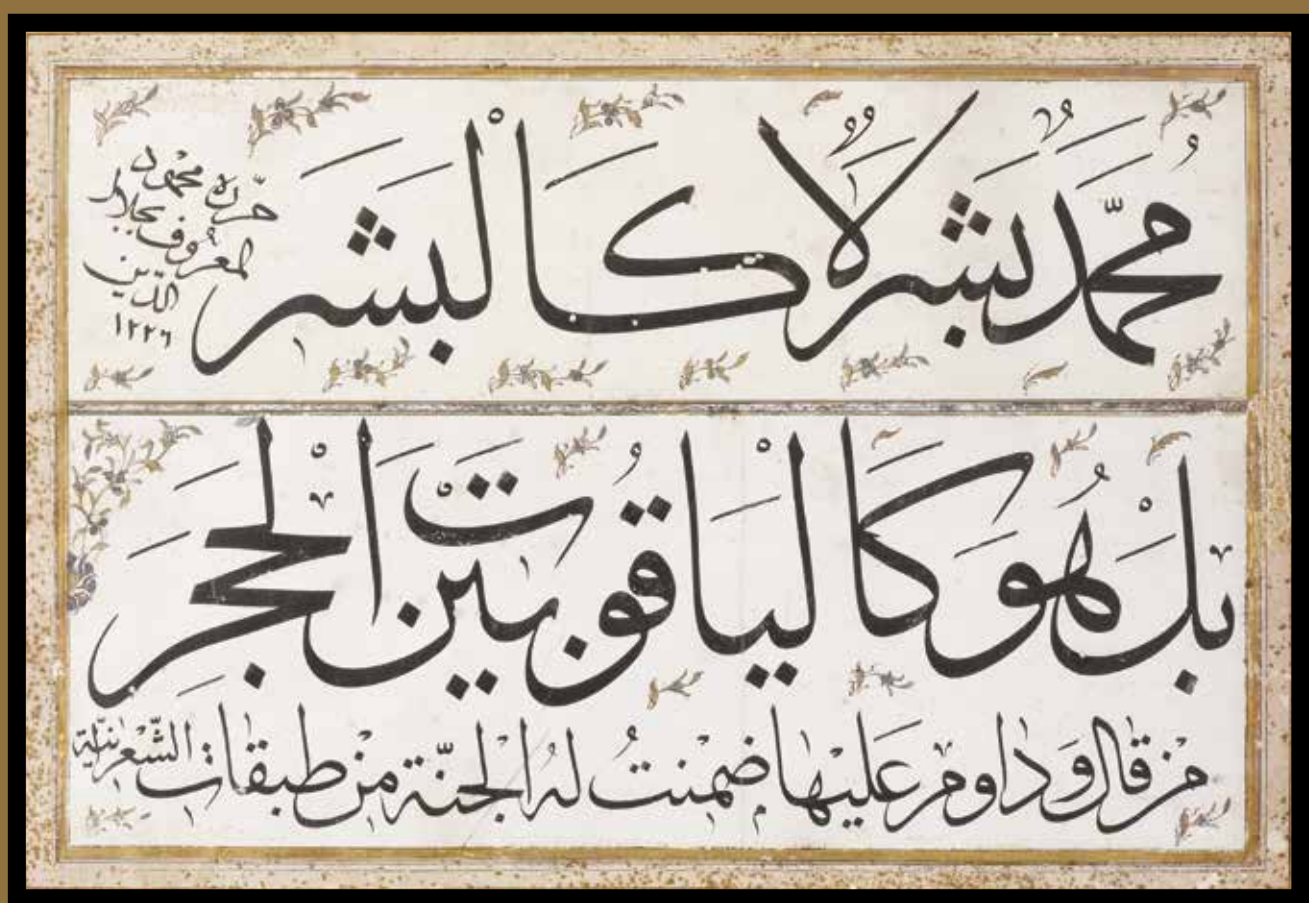 مُحَمَّدٌ بَشَرٌ لَا كَالْبَشَرِ
حرره محمود
المعروف بجلال
الدين
١٢٢٦
بَلْ هُوَ كَالْيَاقُوتِ بَيْنَ الْحَجَرِ
من قال وداوم عليها ضمنتُ له الجنّة من طبقات الشّعرانيّة